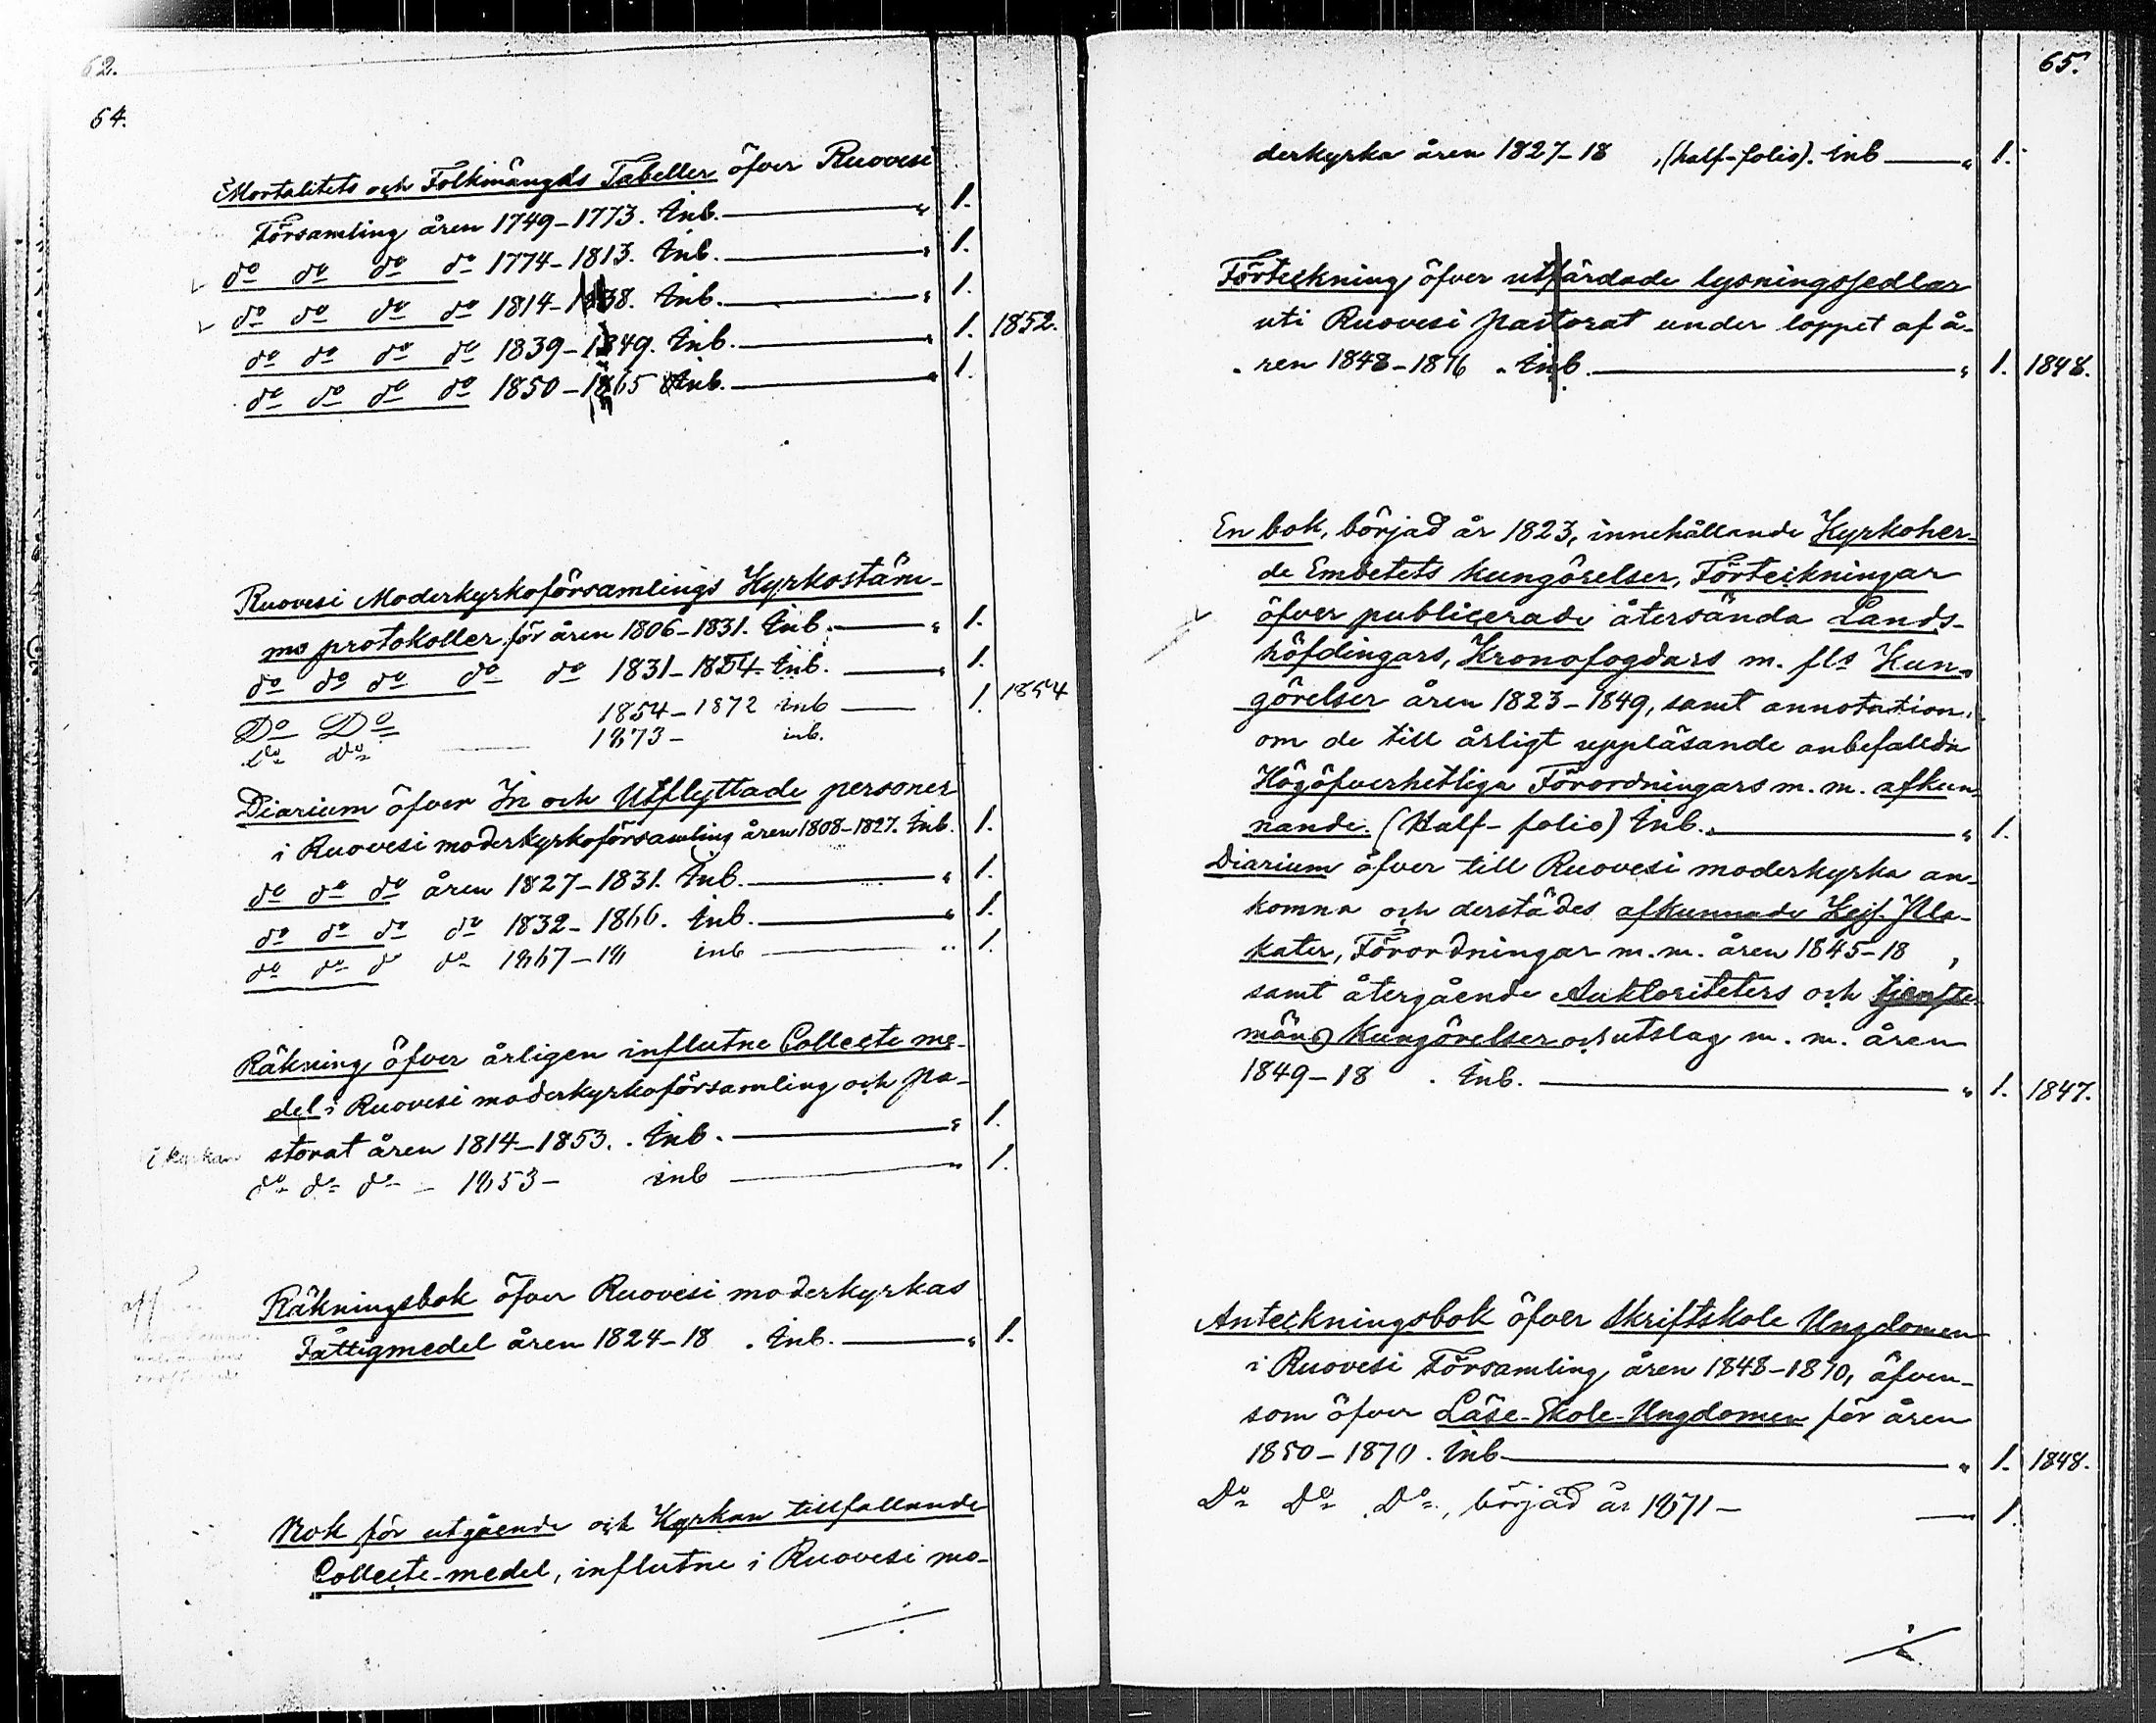 62.
64.
Mortalitets och Folkmängds Tabeller öfver Ruovesi
Församling åren 1749-1773. Inb. " 1.
do do do do 1774-1813. Inb. " 1.
do do do do 1814-1838. Inb. " 1.
do do do do 1839-1849. Inb. " 1. 1852.
do do do do 1850-1865 Inb. " 1.
Ruovesi Moderkyrkoförsamlings Kyrkostäm-
mo protokoller för åren 1806-1831. Inb. " 1.
do do do do do 1831-1854. Inb. " 1.
Do Do 1854-1872 inb 1. 1854
Do Do 1873- inb.
Diarium öfver In och Utflyttade personer
i Ruovesi moderkyrkoförsamling åren 1808-1827. Inb. 1.
do do do åren 1827-1831. Inb. " 1.
do do do do 1832-1866. Inb. " 1.
do do do do 1867-18 inb " 1.
Räkning öfver årligen influtne Collecte me-
del i Ruovesi moderkyrkoförsamling och pa-
storat åren 1814-1853. Inb. " 1.
i kyrkan
do do do - 1853- inb " 1.
Räkningsbok öfver Ruovesi moderkyrkas
Fattigmedel åren 1824-18 . Inb. " 1.
Bok för utgående och Kyrkan tillfallande
Collecte-medel, influtne i Ruovesi mo-
./.
65.
derkyrka åren 1827-18 , (half-folio). Inb " 1.
Förteckning öfver utfärdade lysningssedlar
uti Ruovesi pastorat under loppet af å-
ren 1848-1876 . Inb. " 1. 1848.
En bok, börjad år 1823, innehållande Kyrkoher-
de Embetets kungörelser, Förteckningar
öfver publicerade återsända Lands-
höfdingars, Kronofogdars m. fls Kun-
görelser åren 1823-1849, samt annotation
om de till årligt uppläsande anbefallda
Högöfverhetliga Förordningars m. m. afkun-
nande. (Half-folio) Inb. " 1.
Diarium öfver till Ruovesi moderkyrka an-
komna och derstädes afkunnade Kejs. Pla-
kater, Förordningar m. m. åren 1845-18 ,
samt återgående Auktoriteters och tjenste-
mäns Kungörelser och utslag m. m. åren
1849-18 . Inb. " 1. 1847.
Anteckningsbok öfver Skriftskole Ungdomen
i Ruovesi Församling åren 1848-1870, äfven-
som öfver Läse-Skole-Ungdomen för åren
1850-1870. Inb " 1. 1848.
Do Do Do, börjad år 1871- 1.
./.